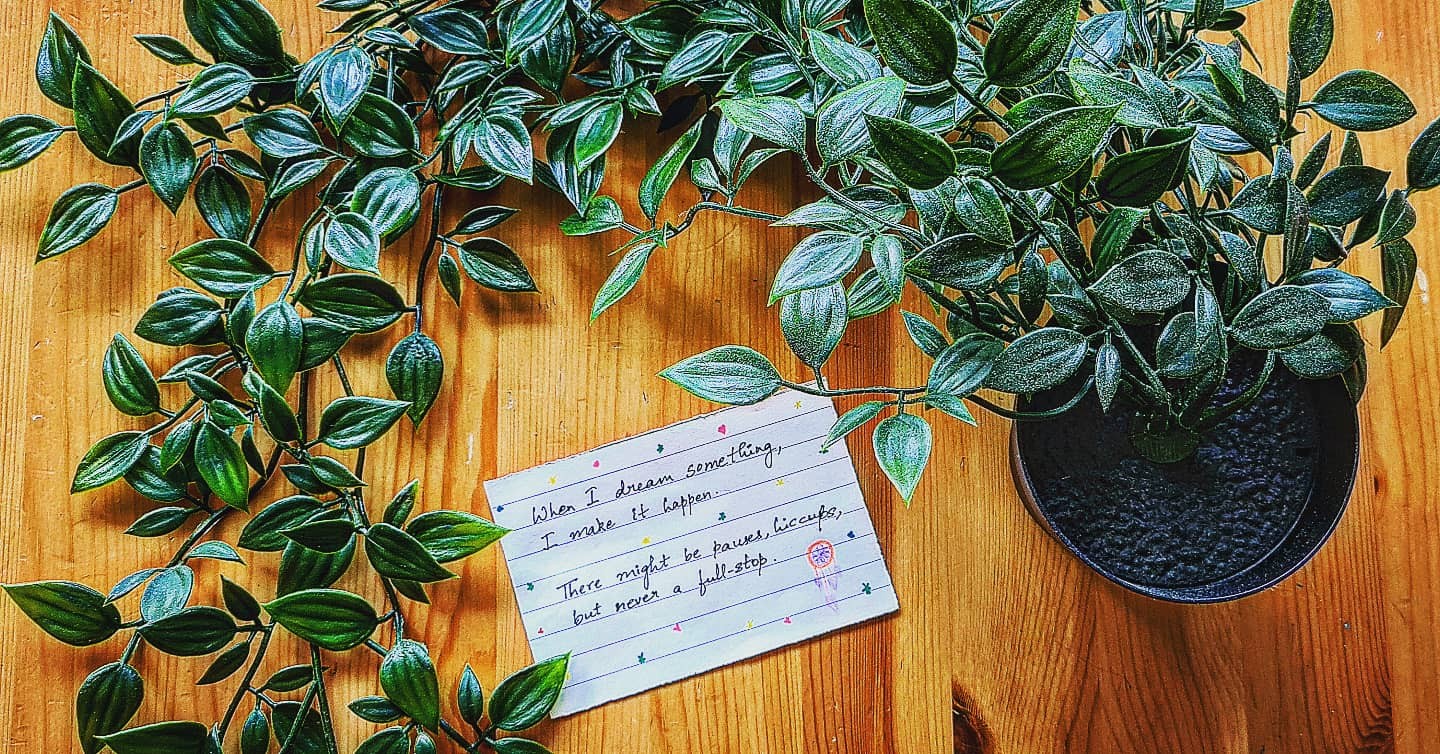 When I dream something,
I make it happen.
There might be pauses, hiccups,
but never a full-stop.